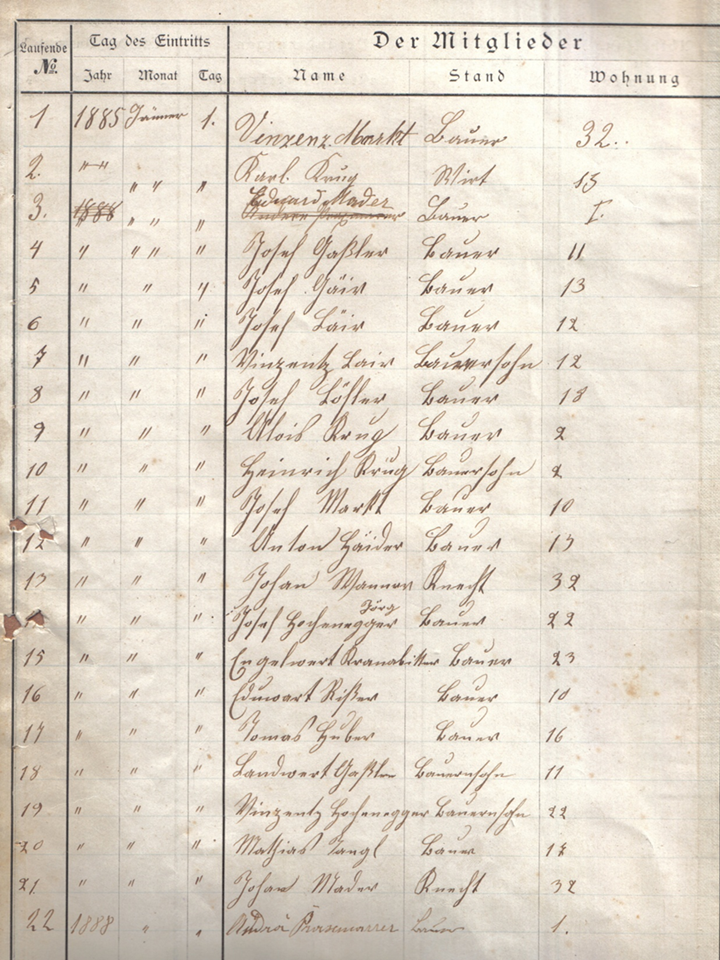 Laufende No.
Tag des Eintritts
Der Mitglieder
Jahr Monat Tag Name Stand Wohnung
1 1885 Jänner 1. Vinzenz Markt Bauer 32.
2. " " " " Karl Krug Wirt 13
Eduard Mader
3. 1888 " " " Bauer I.
4 " " " " Josef Gaßler Bauer 11
5 " " " Josef Gäir Bauer 13
6 " " " Josef Läir Bauer 12
7 " " " Vinzentz Lair Bauersohn 12
8 " " " Josef Löfler Bauer 18
9 " " " Alois Krug Bauer 2
10 " " " Heinrich Krug Bauersohn 2
11 " " " Josef Markt Bauer 10
12 " " " Anton Haider Bauer 13
13 " " " Johan Wanner Knecht 32
Jörg
" " " Josef Hochenegger Bauer 22
15 " " " Engelwert Kranabitter Bauer 23
16 " " " Eduwart Rißer Bauer 10
17 " " " Tomas Huber Bauer 16
18 " " " Landwert Gaßler Bauernsohn 11
19 " " " Vinzentz Hochenegger Bauernsohn 22
20 " " " Mathias Tangl Bauer 12
21 " " " Johan Mader Knecht 32
22 1888 " " Andrä Bauer 1.